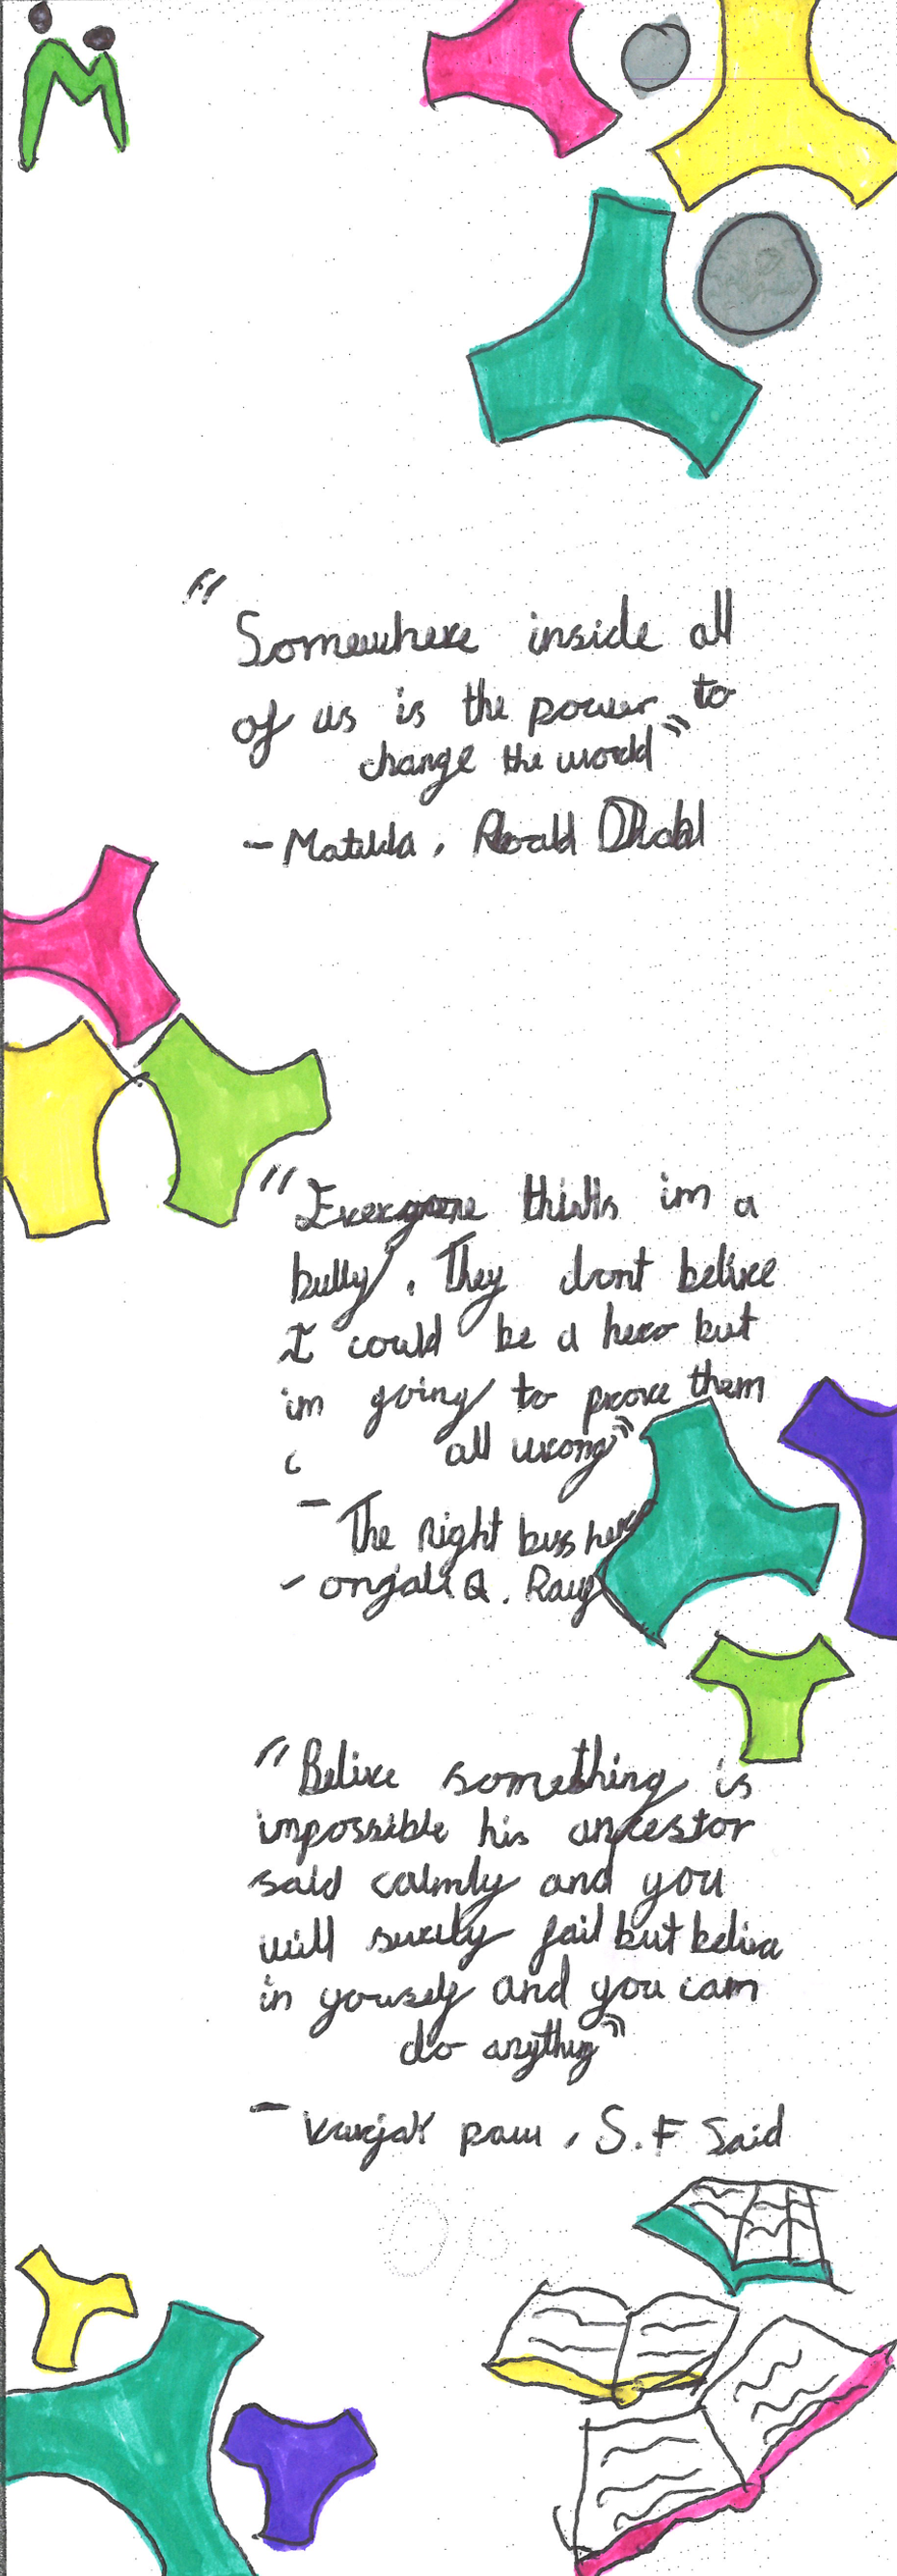 M
"Somewhere inside all
of us is the power to
change the world"
- Matilda, Roald Dhahl
"Everyone thinks im a
bully. They dont belive
I could be a hero but
im going to prove them
all wrong"
- The night buss hero
- onjali Q. Rauf
"Belive something is
impossible his ancestor
said calmly and you
will surely fail but belive
in yousely and you cam
do anything"
- Varjak paw, S.F Said